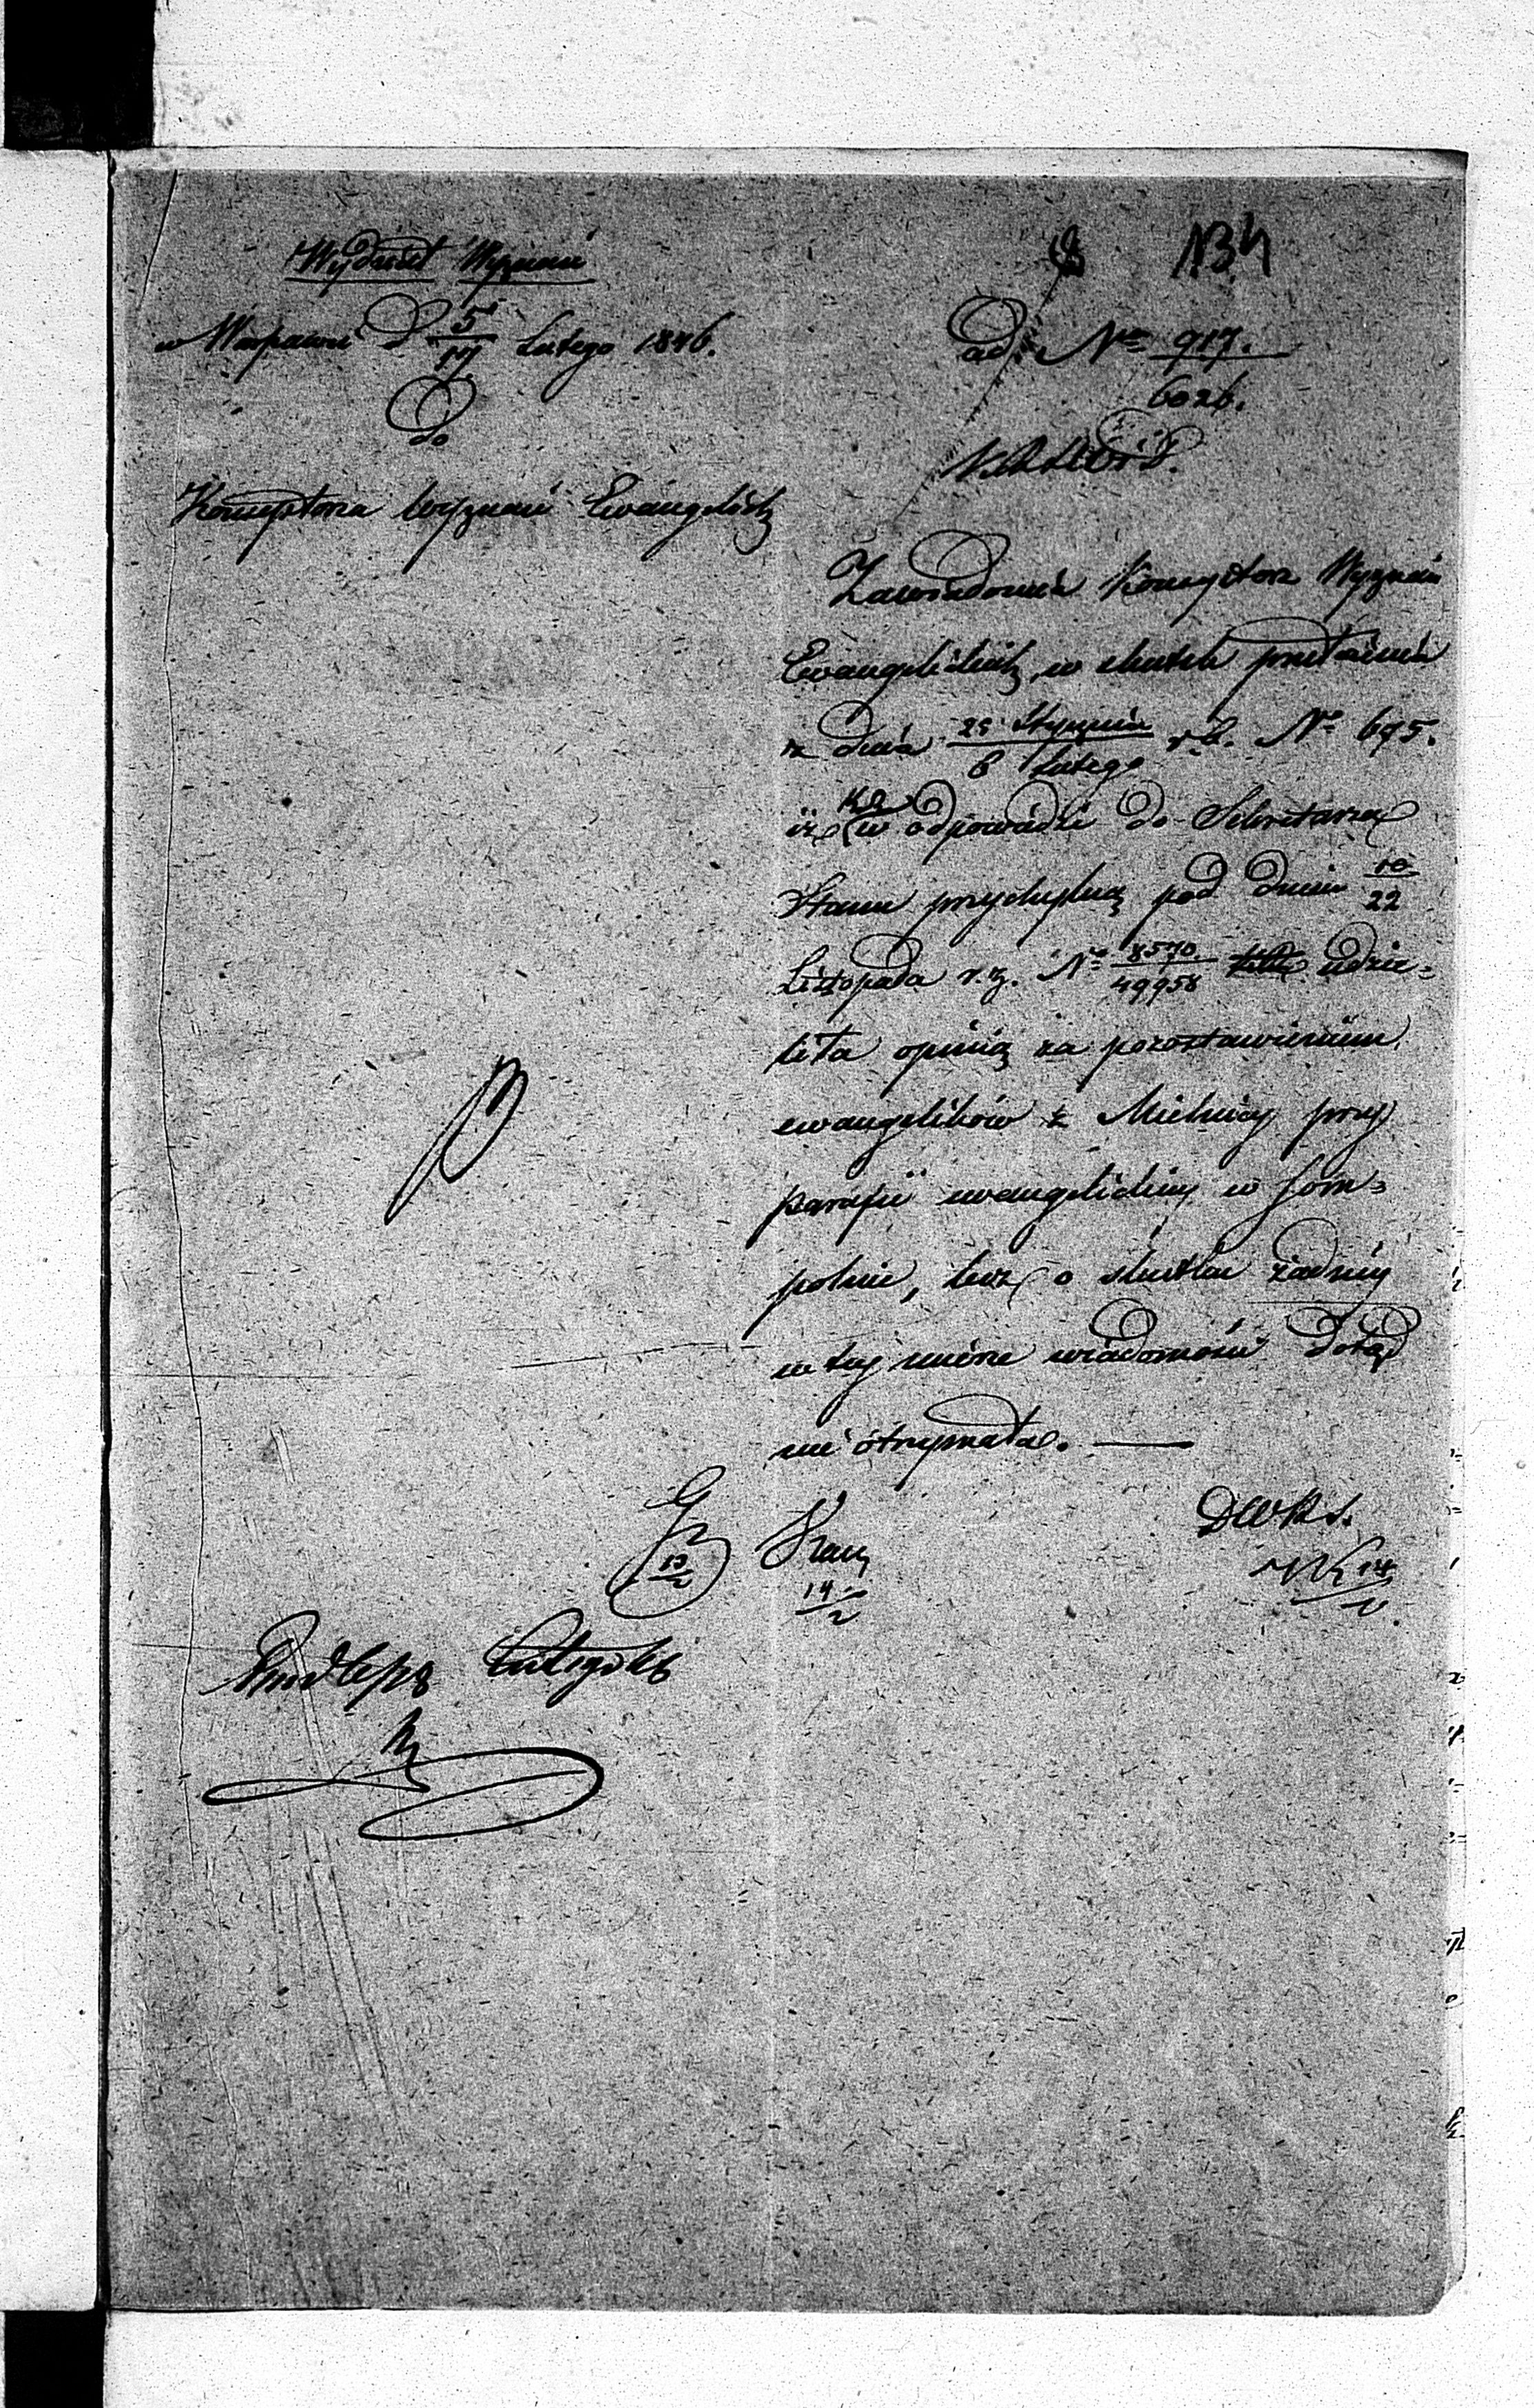 Wydział Wyznań
w Warszawie d 5/17 Lutego 1846.
Do
Konsystorza Wyznań Ewangelick
134
ad Nro 917.
6026.
Zawiadomia Konsystorz Wyznań
Ewangelickich, w skutek przełożenia
z dnia 25 Stycznia / 6 Lutego r.b. No 675.
iż KR w odpowiedzi do Sekretarza
Stanu przychylną pod dniem 10/22
Listopada r.z. No 8570./49958 udzie=
liła opinią za pozostawieniem
ewangelików z Mielnicy przy
parafii ewangelickiej w Som=
polnie, lecz o skutku żadnéj
w tej mierze wiadomości dotąd
nie otrzymała. —
13/2
14/2